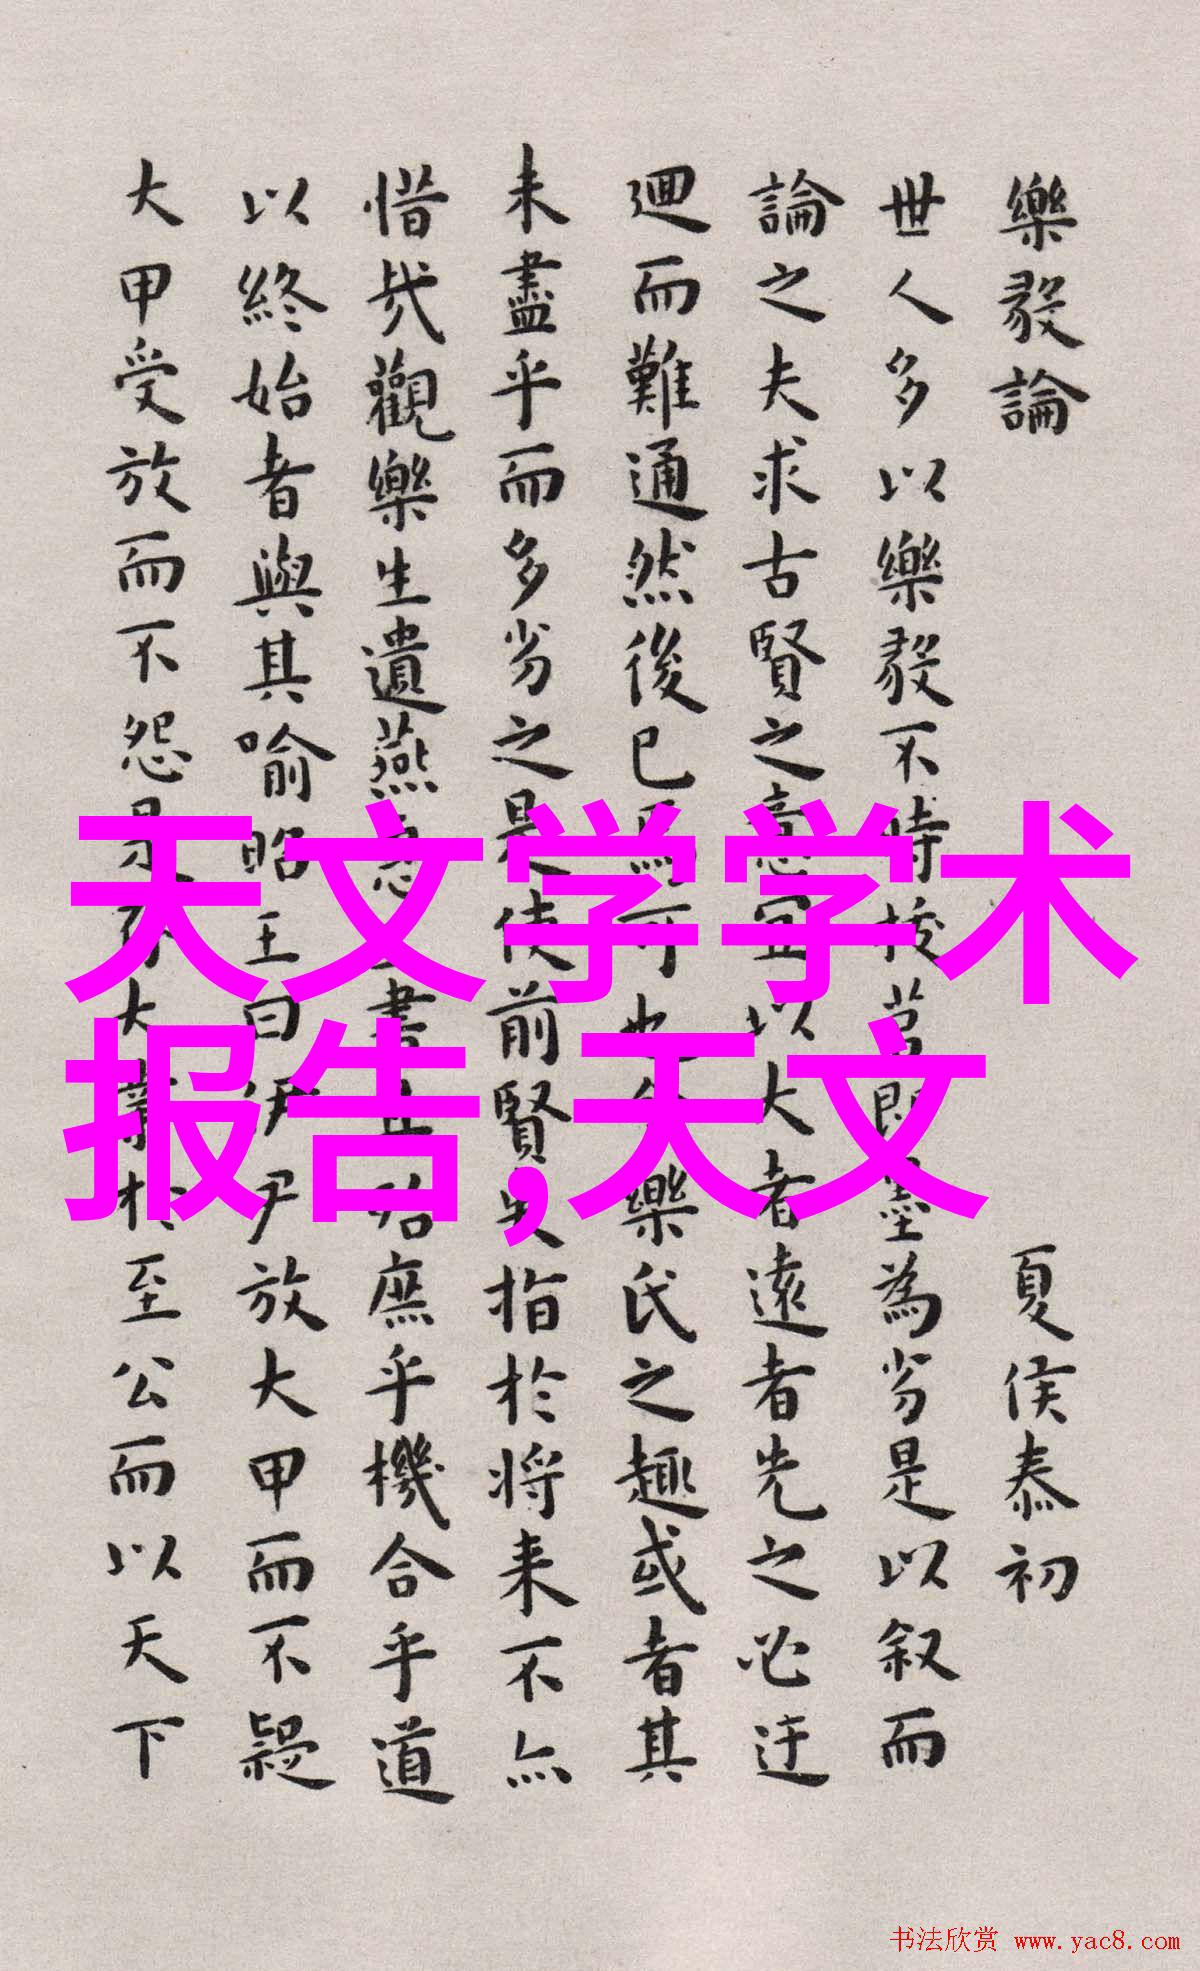 樂毅論
夏侯泰初
世人多以樂毅不時拔莒即墨為劣是以叙而
論之夫求古賢之意宜以大者遠者先之必迂
迴而難通然後已焉可也今樂氏之趣或者其
未盡乎而多劣之是使前賢失指於將来不亦
惜哉觀樂生遺燕惠王書其殆庶乎機合乎道
以終始者與其喻昭王曰伊尹放大甲而不疑
大甲受放而不怨是存大業於至公而以天下
天文学学术
报告,天文
书法欣赏 www.yac8.com